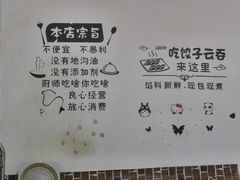 本店宗旨
不便宜 不暴利
没有地沟油
没有添加剂
厨师吃啥你吃啥
良心经营
放心消费
吃饺子云吞
来这里
馅料新鲜,现包现煮